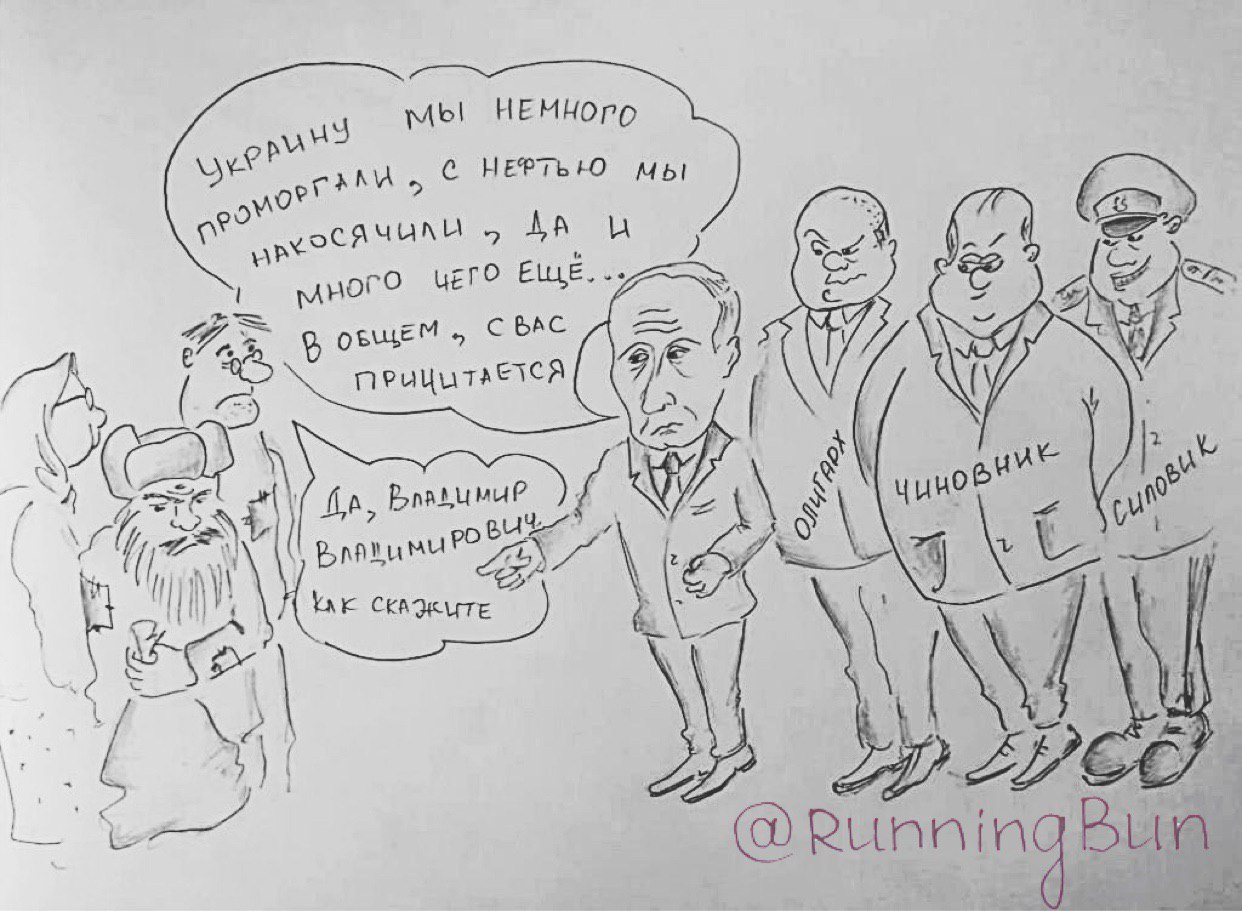 УКРАИНУ МЫ НЕМНОГО
ПРОМОРГАЛИ, С НЕФТЬЮ МЫ
НАКОСЯЧИЛИ, ДА И
МНОГО ЧЕГО ЕЩЁ...
В ОБЩЕМ, С ВАС
ПРИЧИТАЕТСЯ
ДА, ВЛАДИМИР
ВЛАДИМИРОВИЧ
КАК СКАЖИТЕ
ОЛИГАРХ
ЧИНОВНИК
СИЛОВИК
@RunningBun